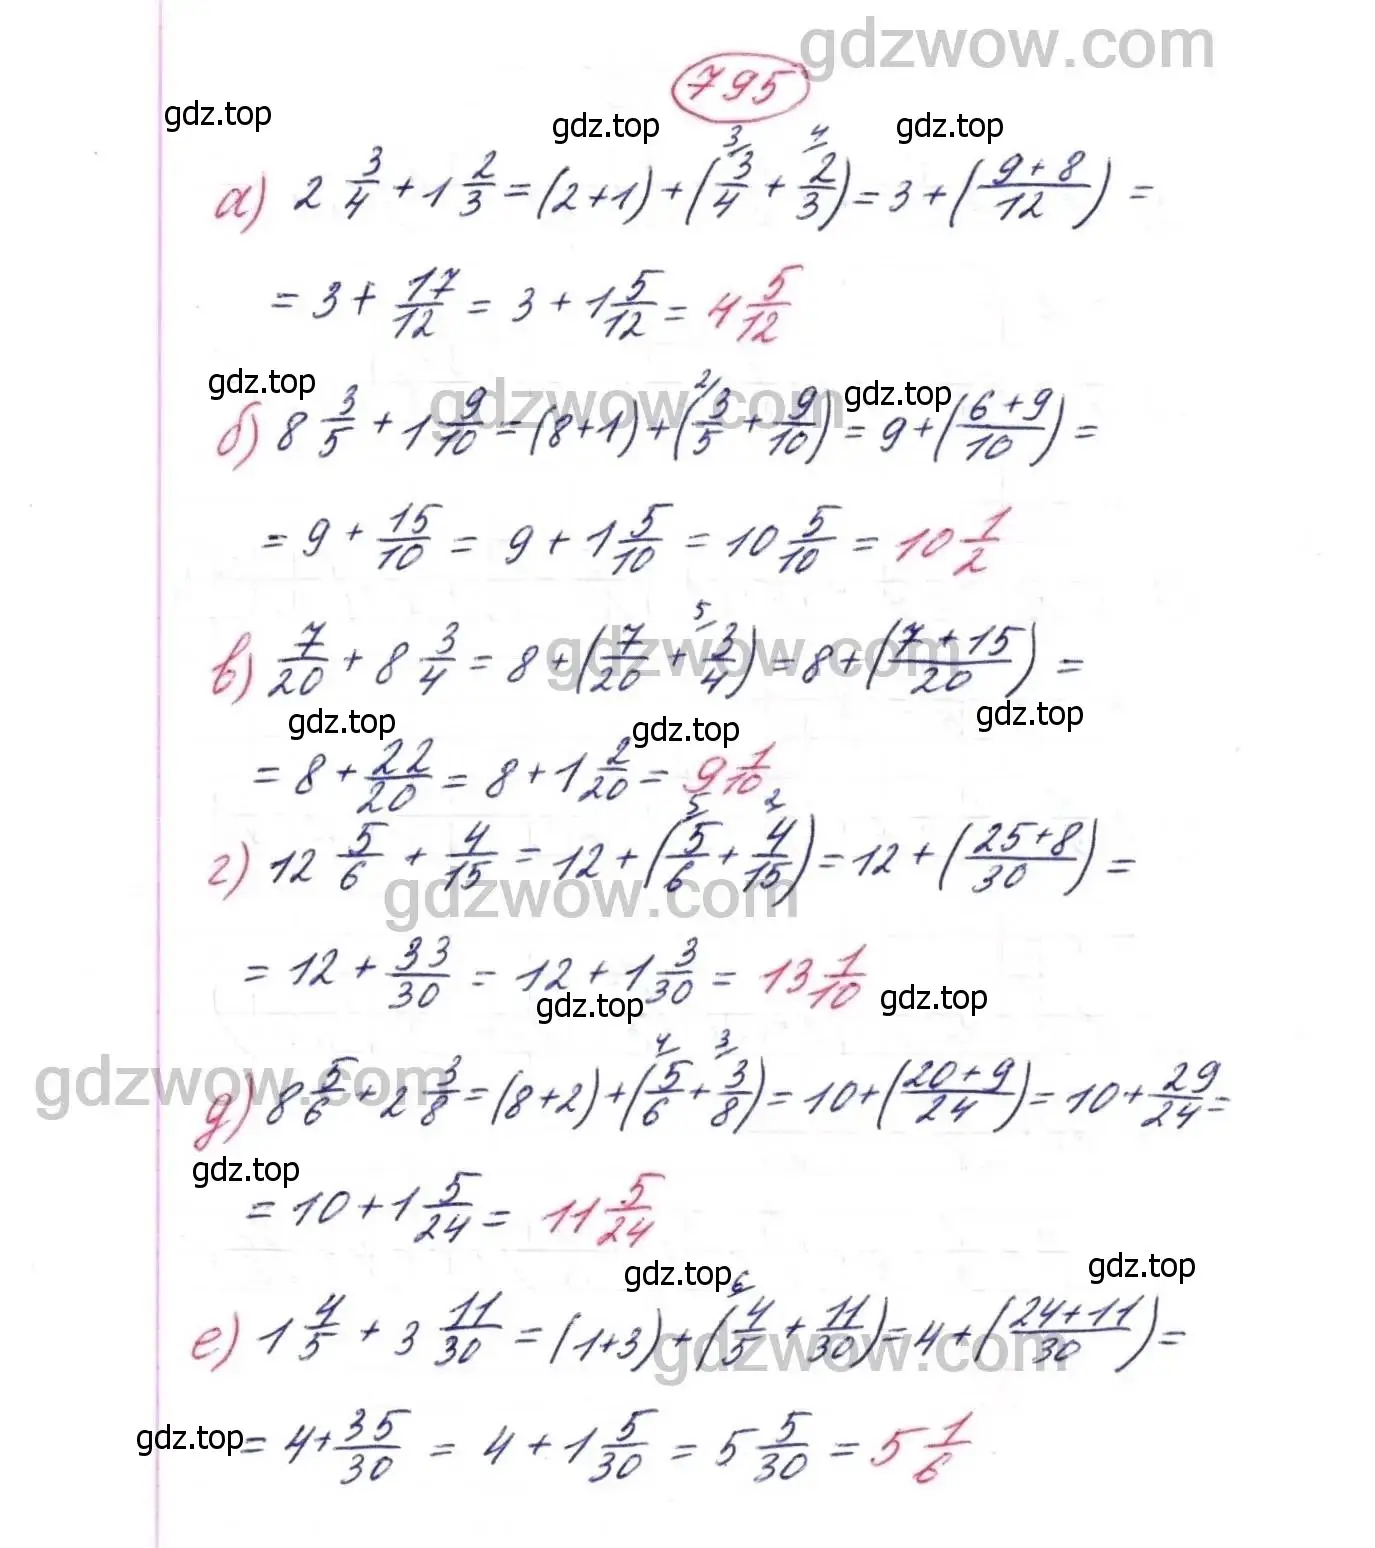 gdzwow.com
795
gdz.top gdz.top gdz.top
а) 2 3/4 + 1 2/3 = (2+1) + (3/4 (3) + 2/3 (4)) = 3 + ((9+8)/12) =
= 3 + 17/12 = 3 + 1 5/12 = 4 5/12
gdz.top gdzwow.com gdz.top
б) 8 3/5 + 1 9/10 = (8+1) + (3/5 (2) + 9/10) = 9 + ((6+9)/10) =
= 9 + 15/10 = 9 + 1 5/10 = 10 5/10 = 10 1/2
gdzwow.com
в) 7/20 + 8 3/4 = 8 + (7/20 + 3/4 (5)) = 8 + ((7+15)/20) =
gdz.top gdz.top gdz.top
= 8 + 22/20 = 8 + 1 2/20 = 9 1/10
г) 12 5/6 + 4/15 = 12 + (5/6 (5) + 4/15 (2)) = 12 + ((25+8)/30) =
gdzwow.com
= 12 + 33/30 = 12 + 1 3/30 = 13 1/10
gdz.top gdz.top
gdzwow.com
д) 8 5/6 + 2 3/8 = (8+2) + (5/6 (4) + 3/8 (3)) = 10 + ((20+9)/24) = 10 + 29/24 =
gdz.top
= 10 + 1 5/24 = 11 5/24
gdz.top gdz.top
е) 1 4/5 + 3 11/30 = (1+3) + (4/5 (6) + 11/30) = 4 + ((24+11)/30) =
gdzwow.com
gdz.top
= 4 + 35/30 = 4 + 1 5/30 = 5 5/30 = 5 1/6